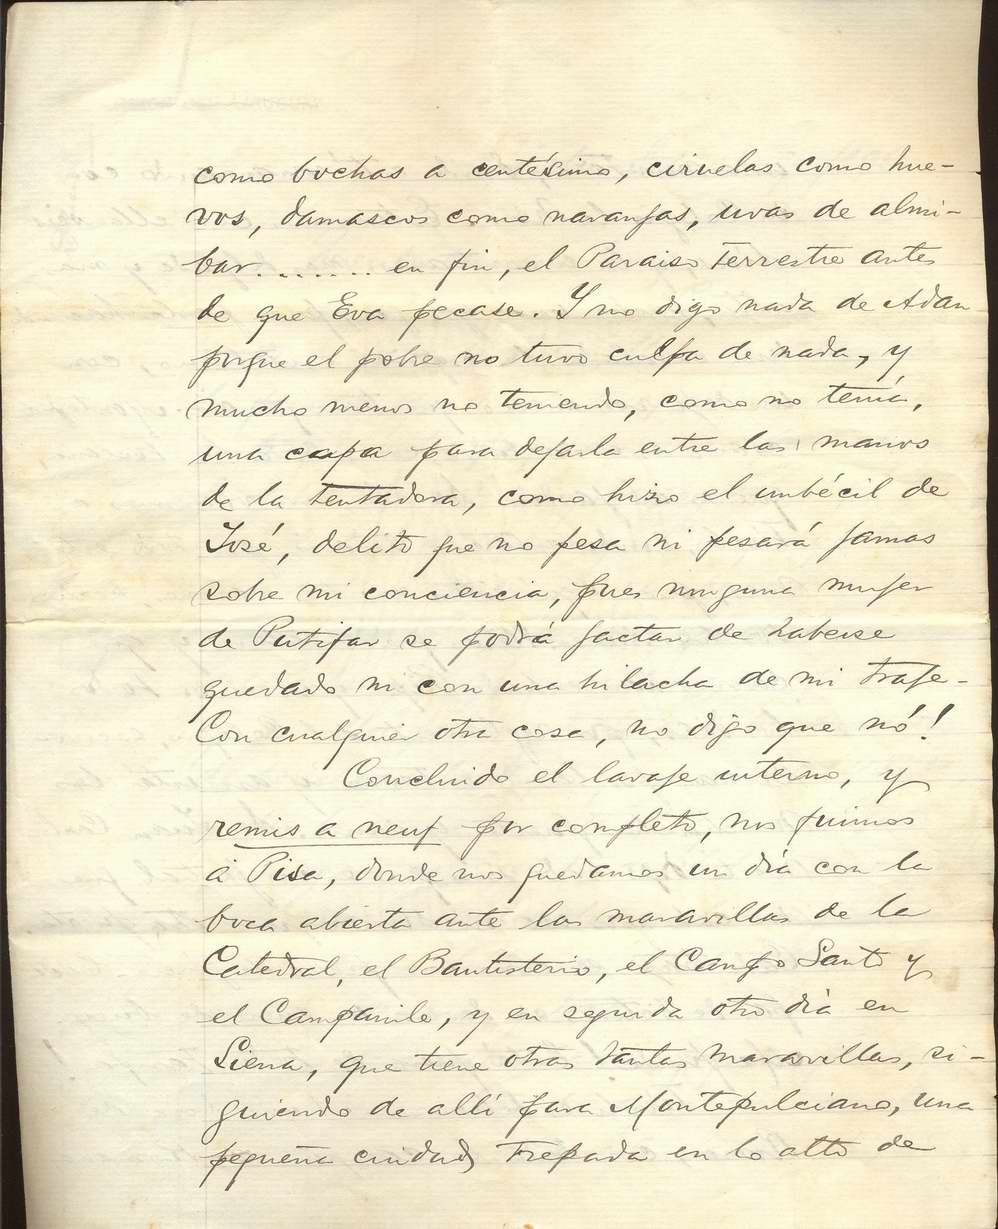 como bochas a centésimo, ciruelas como hue-
vos, damascos como naranjas, uvas de almi-
bar....... en fin, el Paraiso Terrestre antes
de que Eva pecase. Y no digo nada de Adan
porque el pobre no tuvo culpa de nada, y
mucho menos no teniendo, como no tenía,
una capa para dejarla entre las manos
de la tentadora, como hizo el imbécil de
José, delito que no pesa ni pesará jamas
sobre mi conciencia, pues ninguna mujer
de Putifar se podrá jactar de haberse
quedado ni con una hilacha de mi traje-
Con cualquier otra cosa, no digo que nó!
Concluido el lavaje interno, y
remis a neuf por completo, nos fuimos
á Pisa, donde nos quedamos un día con la
boca abierta ante las maravillas de la
Catedral, el Bautisterio, el Campo Santo y
el Campanile, y en seguida otro día en
Siena, que tiene otras tantas maravillas, si-
guiendo de allí para Montepulciano, una
pequeña ciudad, trepada en lo alto de